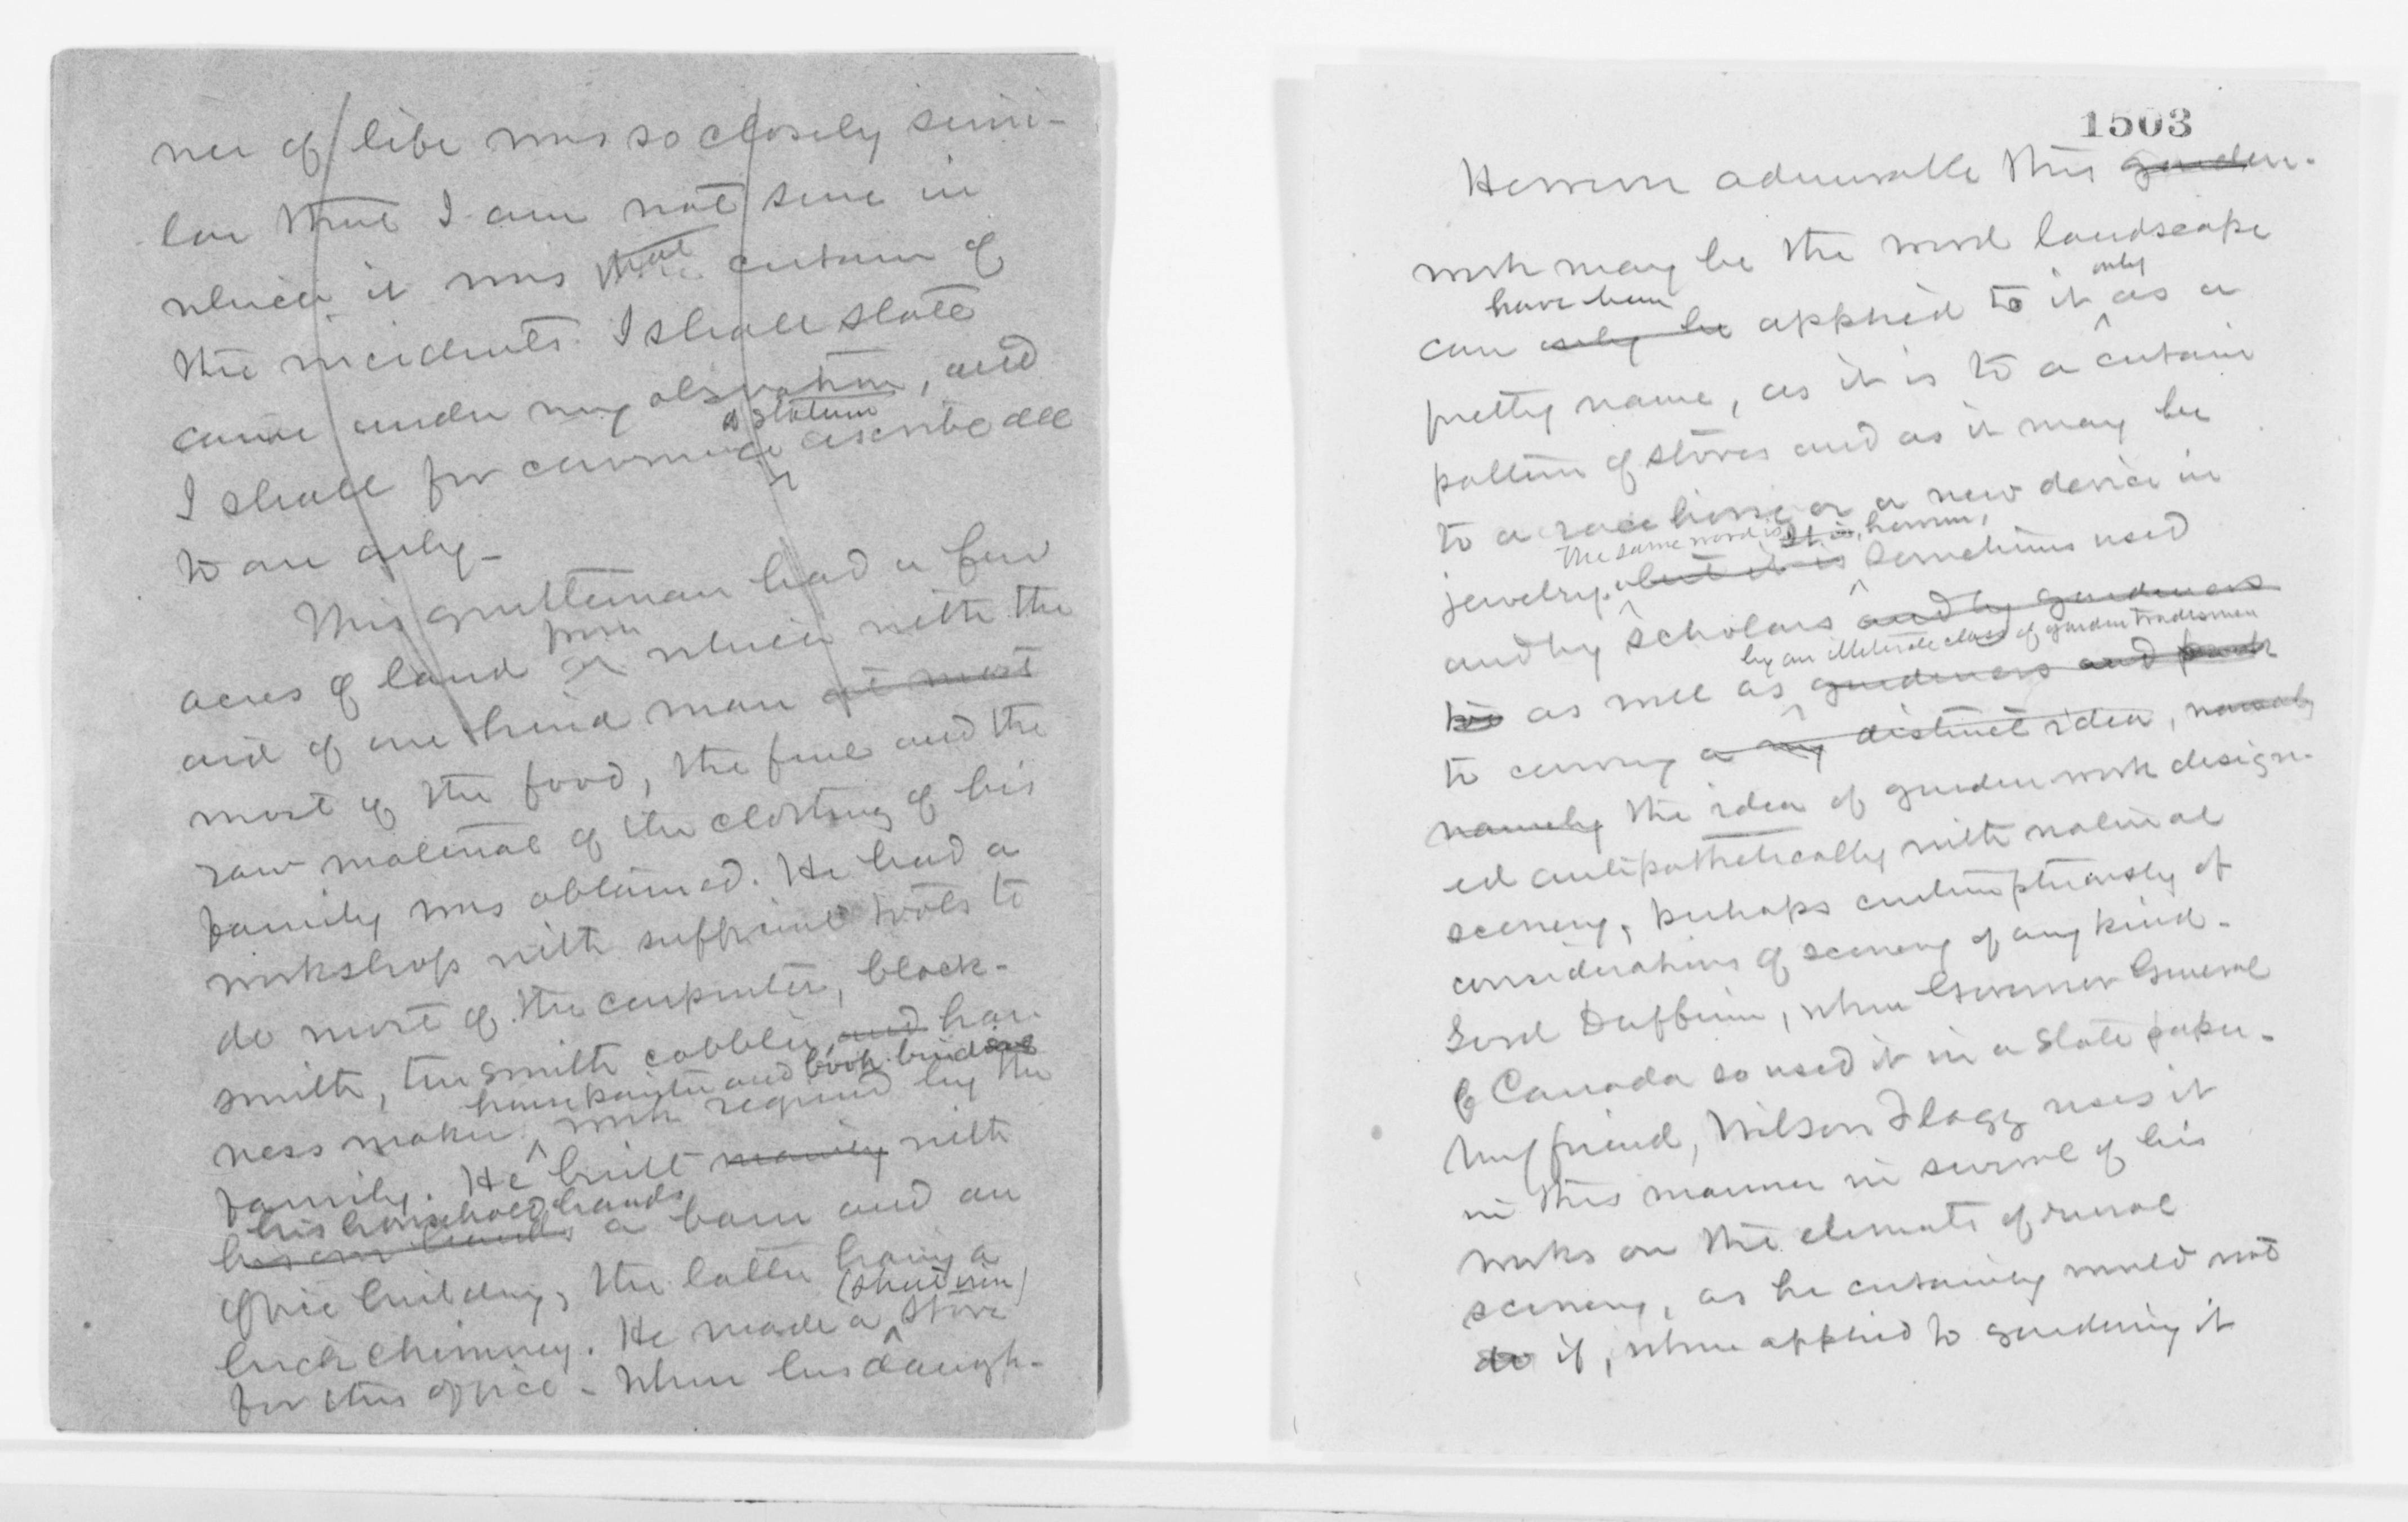 ner of life was so closely simi-
lar that I am not sure in
which it was that certain of
the incidents I shall state
came under my observation, and
a statement
I shall for convenience ascribe all
to one only-
This gentleman had a few
from
acres of land on which with the
aid of one hired man at most
most of the food, the fuel and the
raw material of the clothing of his
family was obtained. He had a
workshop with sufficient tools to
do most of the carpenter, black-
smith, tinsmith cobbler, and har-
house painter and book binders
ness maker work required by the
family. He built mainly with
his household hands
his own hands a barn and an
office building, the latter having a
(sheet iron)
brick chimney. He made a stove
for this office - When his daugh-
1503
However admirable this garden-
work may be the word landscape
have been only
can only be applied to it as a
pretty name, as it is to a certain
pattern of stoves and as it may be
to a race horse or a new device in
The same word is It is, however,
jewelry. but it is sometimes used
and by scholars and by gardeners
by an illiterate class of garden tradesmen
as well as gardeners and
to convey a distinct idea, namely
namely the idea of garden work design-
ed antipathetically with natural
scenery, perhaps contemptuously of
considerations of scenery of any kind-
Lord Dufferin, when Governor General
of Canada so used it in a State paper-
My friend, Wilson Flagg uses it
in this manner in several of his
works on the elements of rural
scenery, as he certainly would not
do if, when applied to gardening it